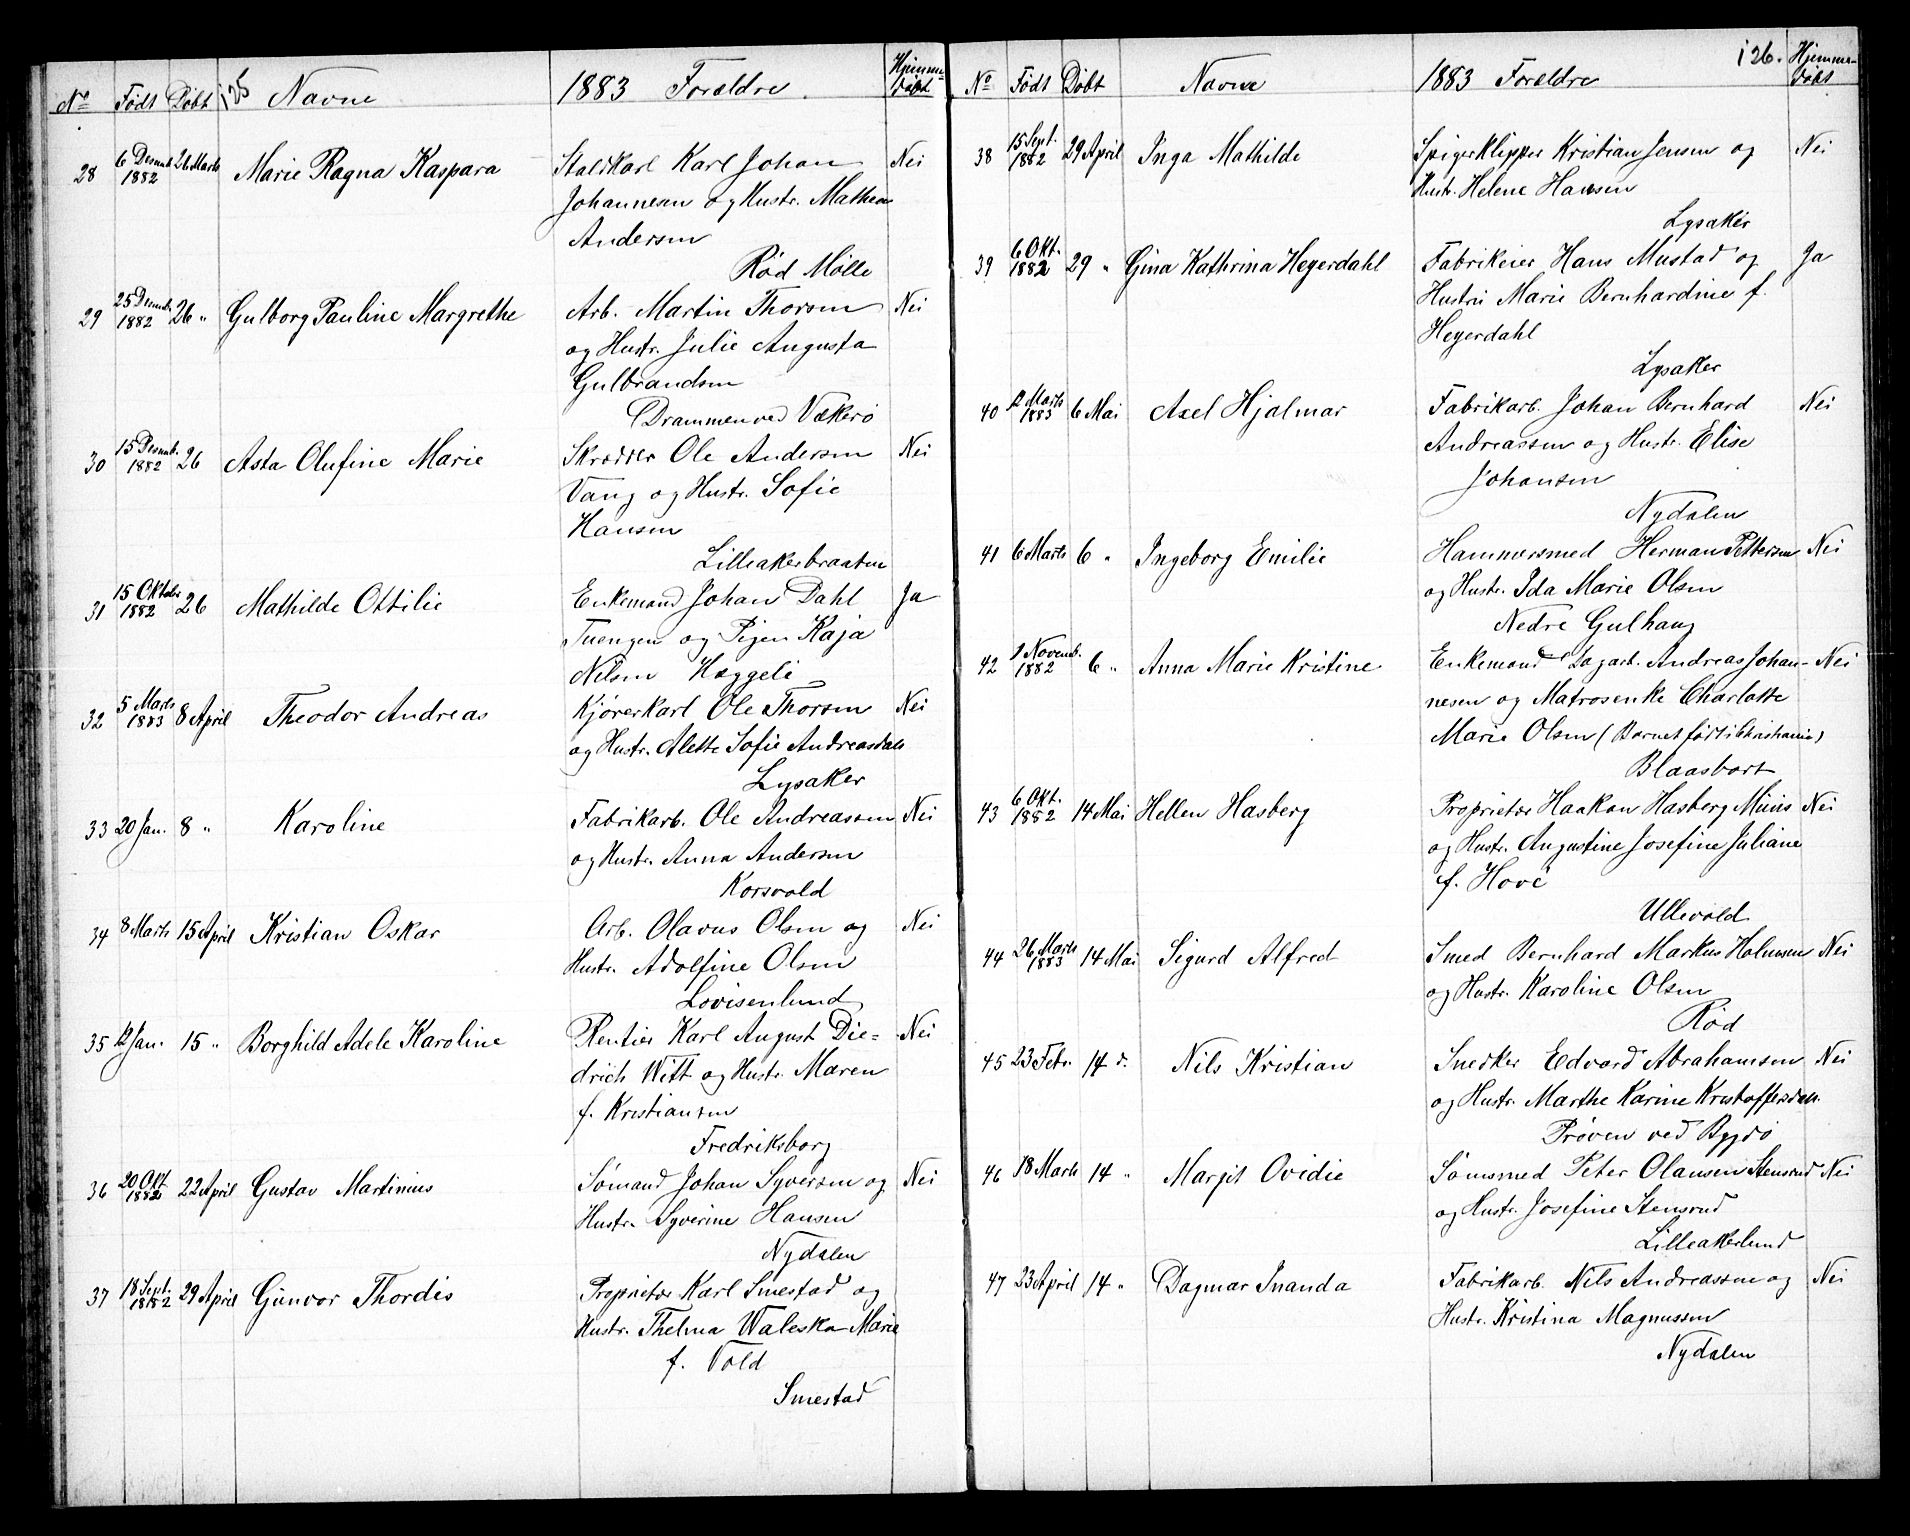 125
No Født Døbt Navne 1883 Forældre Hjemmedøbt
28 6 Desemb. 1882 26 Marts Marie Ragna Kaspara Staldkarl Karl Johan Nei
Johannesen og Hustr. Mathea
Andersen
Rød Mølle
29 25 Desemb. 1882 26 " Gulborg Pauline Margrethe Arb. Martin Thorsen Nei
og Hustr. Julie Augusta
Gulbrandsen
Drammenved Vækerö
30 15 Desemb. 1882 26 Asta Olufine Marie Skrædder Ole Andersen Nei
Vang og Hustr. Sofie
Hansen
Lilleakerbraaten
31 15 Oktober 1882 26 Mathilde Ottilie Enkemand Johan Dahl Ja
Tuengen og Pigen Kaja
Nilsen Hæggeli
32 5 Marts 1883 8 April Theodor Andreas Kjørerkarl Ole Thorsen Nei
og Hustr. Alette Sofie Andreasdatt.
Lysaker
33 20 Jan. 8 " Karoline Fabrikarb. Ole Andreassen Nei
og Hustr. Anna Andersen
Korsvold
34 8 Marts 15 April Kristian Oskar Arb. Olavus Olsen og Nei
Hustr. Adolfine Olsen
Lovisenlund
35 12 Jan. 15 " Borghild Adele Karoline Rentier Karl August Die= Nei
drich Witt og Hustr. Maren
f. Kristiansen
Fredriksborg
36 20 Okt. 1882 22 April Gustav Martinius Sömand Johan Syversen og Nei
Hustr. Syverine Hansen
Nydalen
37 18 Sept. 1882 29 April Gunvor Thordis Proprietær Karl Smestad og
Hustr. Thelma Waleska Marie
f. Vold
Smestad
126.
No Født Döbt Navne 1883 Forældre Hjemmedöbt
38 15 Sept. 1882 29 April Inga Mathilde Spigerklipper Kristian Jensen og Nei
Hustr. Helene Hansen
Lysaker
39 6 Okt. 1882 29 " Gina Kathrina Heyerdahl Fabrikeier Hans Mustad og Ja
Hustru Marie Bernhardine f.
Heyerdahl
Lysaker
40 12 Marts 1883 6 Mai Axel Hjalmar Fabrikarb. Johan Bernhard Nei
Andreassen og Hustr. Elise
Johansen
Nydalen
41 6 Marts 6 " Ingeborg Emilie Hammersmed Herman Pettersen Nei
og Hustr. Ida Marie Olsen
Nedre Gulhaug
42 9 Novemb. 1882 6 " Anna Marie Kristine Enkemand Dagarb. Andreas Johan- Nei
nesen og Matrosenke Charlotte
Marie Olsen (Barnet født i Christiania)
Blaasbort
43 6 Okt. 1882 14 Mai Hellen Hasberg Proprietær Haakon Hasberg Nei
og Hustr. Augustine Josefine Juliane
f. Hove
Ullevold
44 26 Marts 1883 14 Mai Sigurd Alfred Smed Bernhard Markus Holmsen Nei
og Hustr. Karoline Olsen
Rød
45 23 Febr. 14 d. Nils Kristian Snedker Edvard Abrahamsen Nei
og Hustr. Marthe Karine Kristoffersdatt.
Prøven ved Bygdö
46 18 Marts 14 " Margit Ovidie Sömsmed Peter Olausen Stensrud Nei
og Hustr. Josefine Stensrud
Lilleakerlund
47 23 April 14 " Dagmar Inanda Fabrikarb. Nils Andreassen og Nei
Hustr. Kristina Magnussen
Nydalen